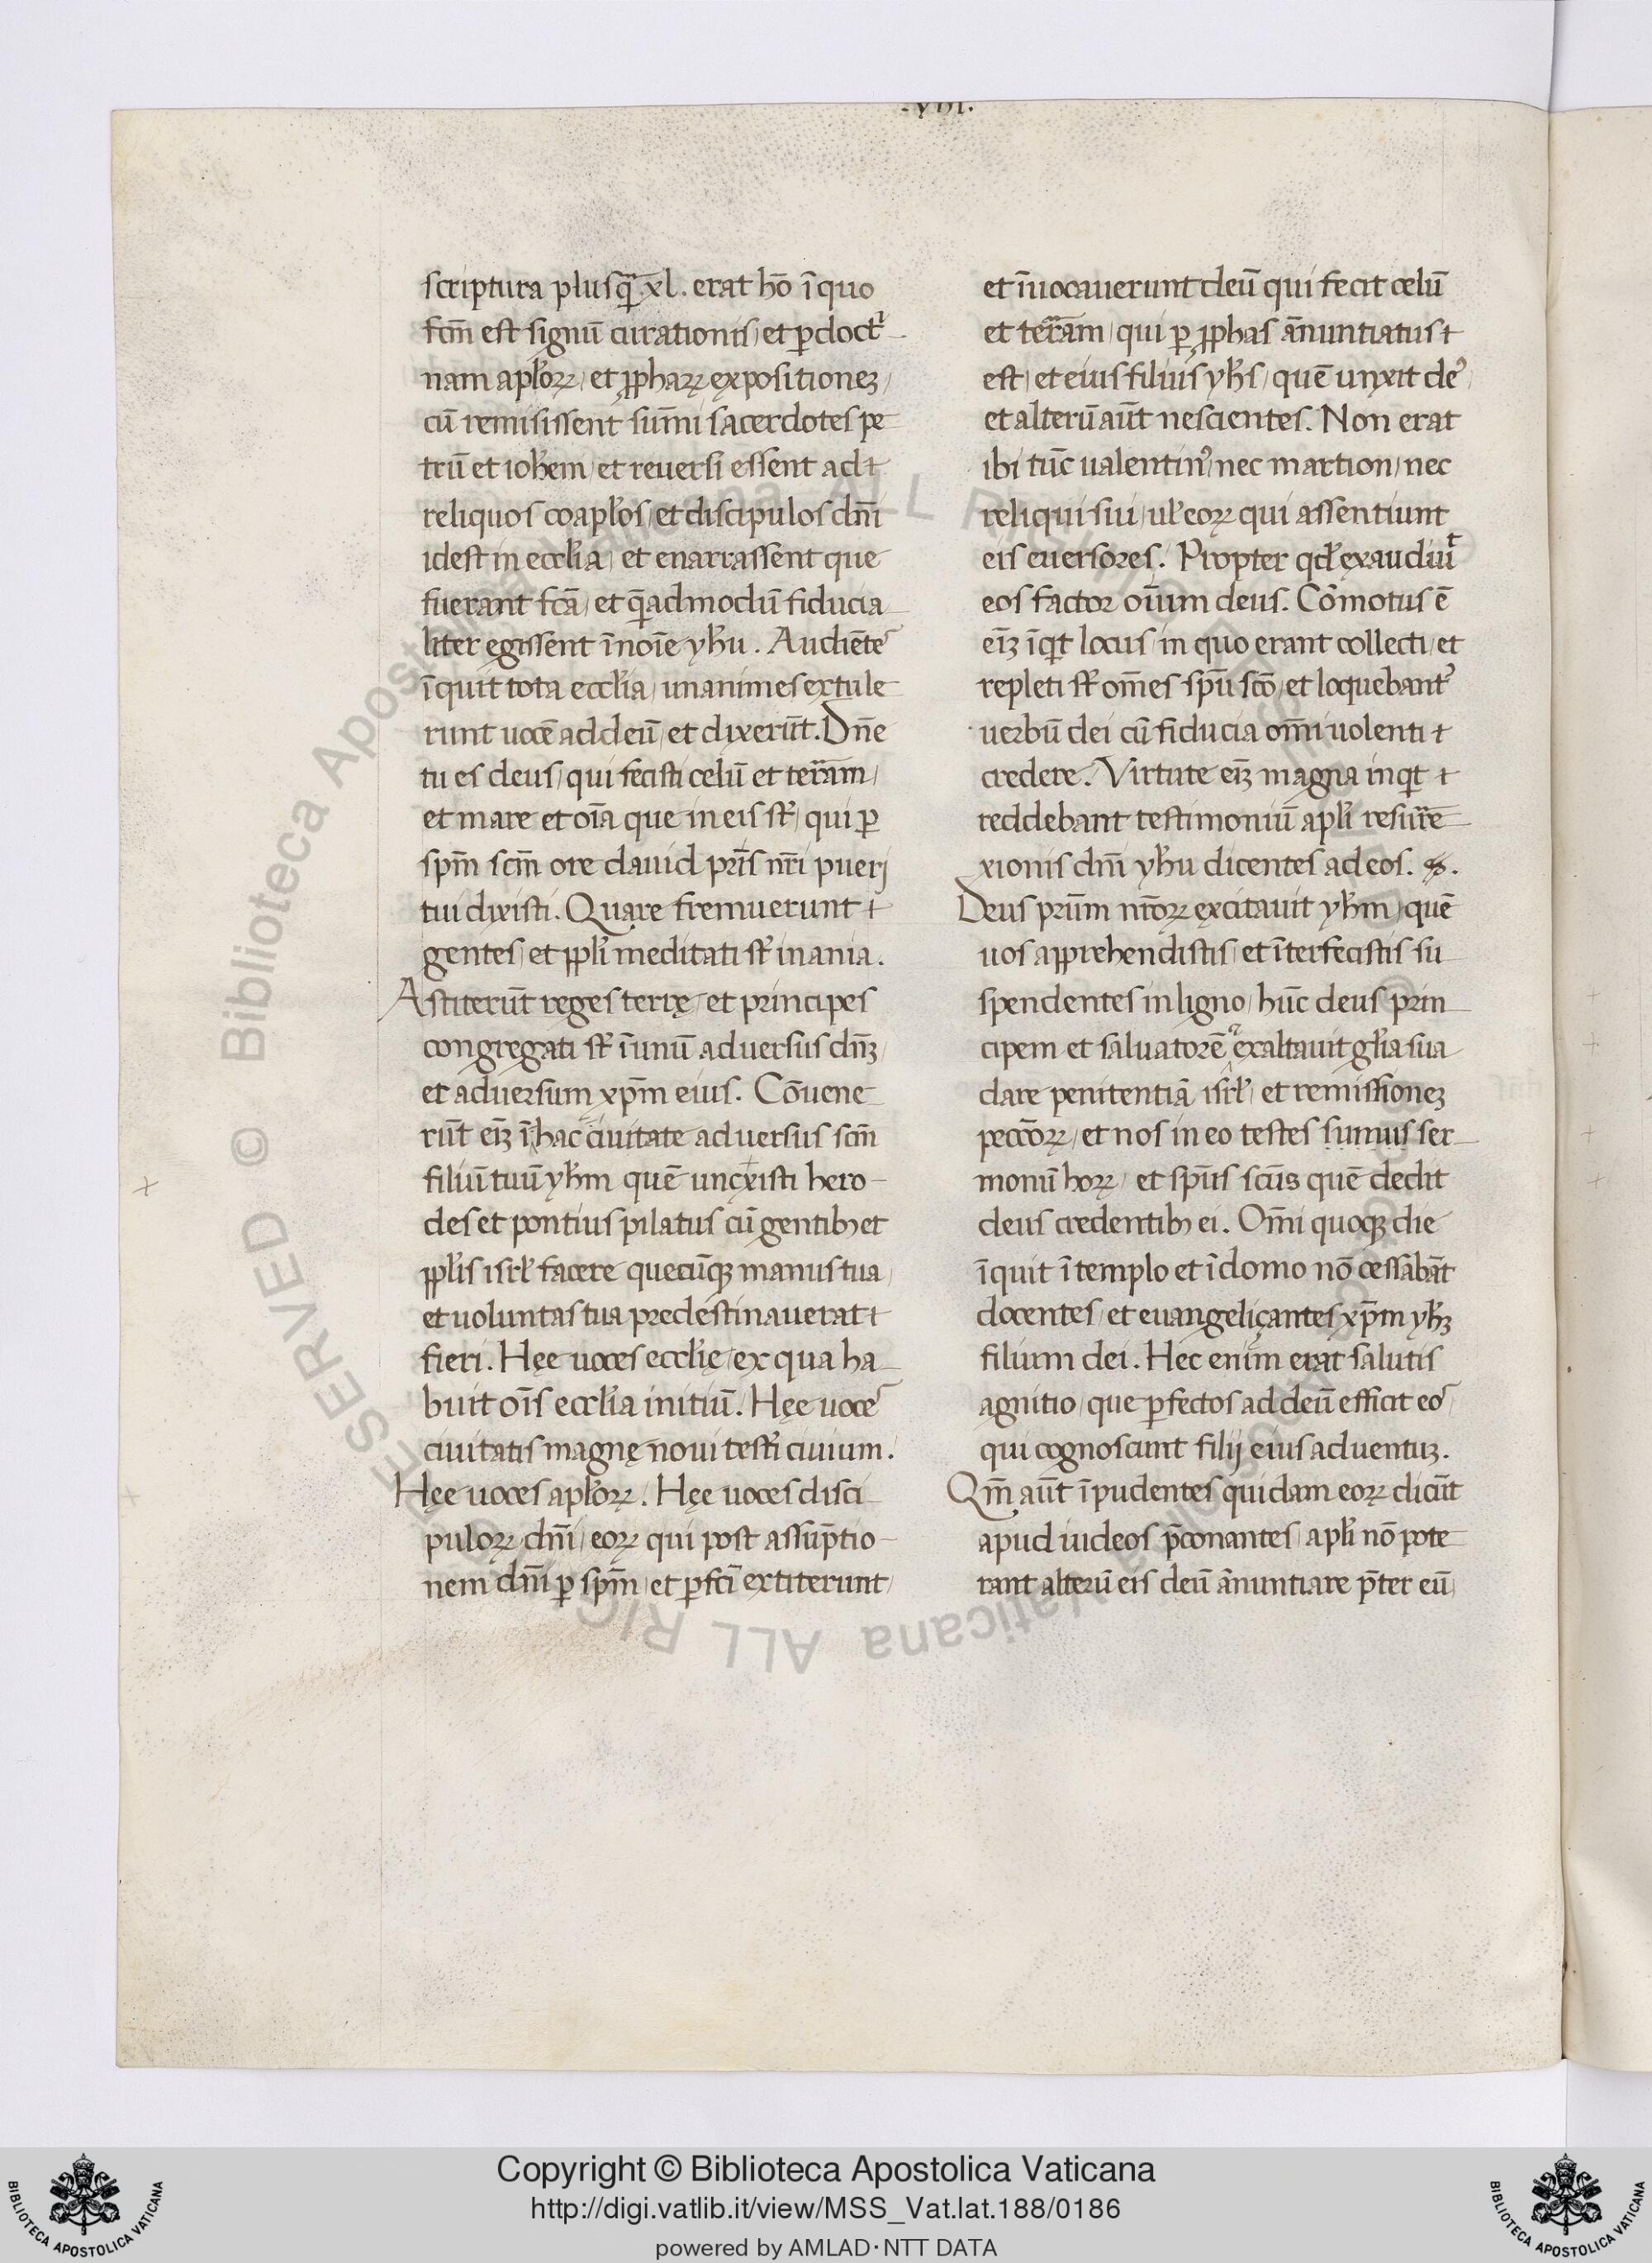 .VIII.
scriptura plusq̃ xl. erat hō ı̄ quo
fcm̄ est signū curationis, et ꝑ doctⁱ
nam apl̄oꝝ, et ꝓphaꝝ expositioneꝫ,
cū remisissent sum̄i sacerdotes pe
trū et ioh̄em, et reuersi essent ad
reliquos coapl̄os, et discipulos dn̄i
idest in eccl̄ia, et enarrassent que
fuerant fcā, et q̄admodū fiducia
liter egissent ı̄ noı̄e yh̄u. Audiēteˢ
ı̄quit tota eccl̄ia, unanimes extule
runt uocē ad deū, et dixerūt. Dn̄e
tu es deus, qui fecisti celū et terram,
et mare et oı̄a que in eis st̄, qui ꝑ
spm̄ scm̄ ore dauid pr̄is nr̄i pueri
tui dixisti. Quare fremuerunt
gentes, et ppl̄i meditati st̄ inania.
Astiterūt reges terrę, et principes
congregati st̄ ı̄ unū aduersus dn̄ꝫ,
et aduersum xp̄m eius. Cōuene
rūt eı̄ꝫ ı̄ hac ciuitate aduersus scm̄
filiū tuū yh̄m quē uncxisti hero
des et pontius pilatus cū gentibꝫ et
ppl̄is isrl̄ facere quecūqꝫ manus tua,
et uoluntas tua predestinauerat
fieri. Hęe uoces eccl̄ię, ex qua ha
buit oı̄s eccl̄ia initiū. Hęe uoceˢ
ciuitatis magnę noui test̄i ciuium.
Hęe uoces apl̄oꝝ. Hęe uoces disci
puloꝝ dn̄i, eoꝝ qui post assūptio
nem dn̄i ꝑ spm̄, et ꝑfcı̄ extiterunt,
et ı̄uocauerunt deū qui fecit celū
et terram, qui ꝑ ꝓphas ānuntiatus
est, et eius filius yh̄s, quē unxit deꝰ,
et alterū aūt nescientes. Non erat
ibi tūc ualentinꝰ, nec martion, nec
reliqui sui, ul̄ eoꝝ qui assentiunt
eis euersores. Propter qd̄ exaudiuᵗ
eos factor oı̄um deus. Cōmotus ē
eı̄ꝫ ı̄qt locus in quo erant collecti, et
repleti st̄ om̄es spū scō, et loquebantᵉ
uerbū dei cū fiducia om̄i uolenti
credere. Virtute eı̄ꝫ magna inqt
reddebant testimoniū apl̄i resurre
xionis dn̄i yh̄u dicentes ad eos.
Deus pr̄um nr̄oꝝ excitauit yh̄m, quē
uos apprehendistis, et ı̄terfecistis su
spendentes in ligno, hūc deus prin
cipem et saluatorē exaltauit gl̄ia sua
dare penitentiā isrl̄, et remissioneꝫ
peccōꝝ, et nos in eo testes sumus ser
monū hoꝝ, et spūs scūs quē dedit
deus credentibꝫ ei. Om̄i quoqꝫ die
ı̄quit ı̄ templo et ı̄ domo nō cessabāt
docentes, et euangeliçantes xp̄m yh̄ꝫ
filium dei. Hec enim erat salutis
agnitio, que ꝑfectos ad deū efficit eoˢ
qui cognoscunt filij eius aduentuꝫ.
Qm̄ aūt ı̄pudentes quidam eoꝝ dicūt
apud iudeos p̄conantes, apl̄i nō pote
rant alterū eis deū ānuntiare p̄ter eū,
© Biblioteca Apostolica Vaticana ALL RIGHTS RESERVED
Copyright © Biblioteca Apostolica Vaticana
http://digi.vatlib.it/view/MSS_Vat.lat.188/0186
powered by AMLAD·NTT DATA
BIBLIOTECA APOSTOLICA VATICANA
BIBLIOTECA APOSTOLICA VATICANA